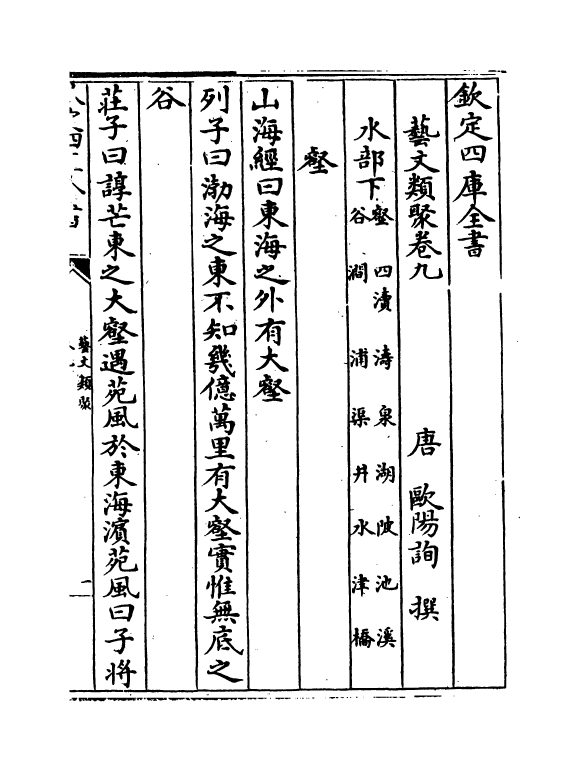 欽定四庫全書
藝文類聚卷九
唐 歐陽詢 撰
水部下 壑 四瀆 濤 泉 湖 陂 池 溪
谷 澗 浦 渠 井 水 津 橋
壑
山海經曰東海之外有大壑
列子曰渤海之東不知幾億萬里有大壑實惟無底之
谷
莊子曰諄芒東之大壑遇苑風於東海濱苑風曰子將
藝文類聚